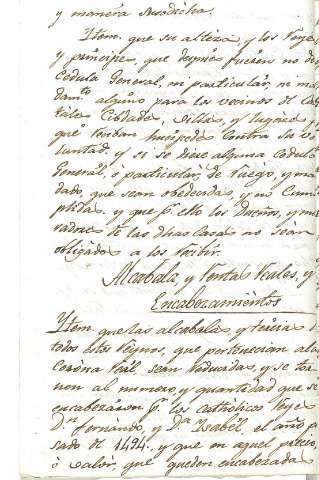 y manera susodicha.
Item. que su alteza y los Reye
y principes, que despues fueren no de
cedula General, ni particular, ni ma
dam.to alguno para los vecinos de las
tales Cibdades, Villas, y lugares p
que tendan huespedes contra su vo
luntad, y si se diere alguna cedula
General, o particular, de ruego, y ma
dado, que sean obedecidas, y no Cum
plidas. y que p.r ello los Dueños, y mo
radores de las dhas Casas no sean
obligados a los recibir.
Alcabala, y rentas Reales, y
Encabezamientos
Item. que las alcabalas, y tercias d
todos estos Reynos, que pertenecian a la
corona Real sean reducidas, y se tor
nen al numero, y quantidad que se
encabezaron p.r los catholicos Reye
D.n fernando, y D.a Isabèl el año pa
sado de 1494., y que en aquel precio,
ò valor, que queden encabezada